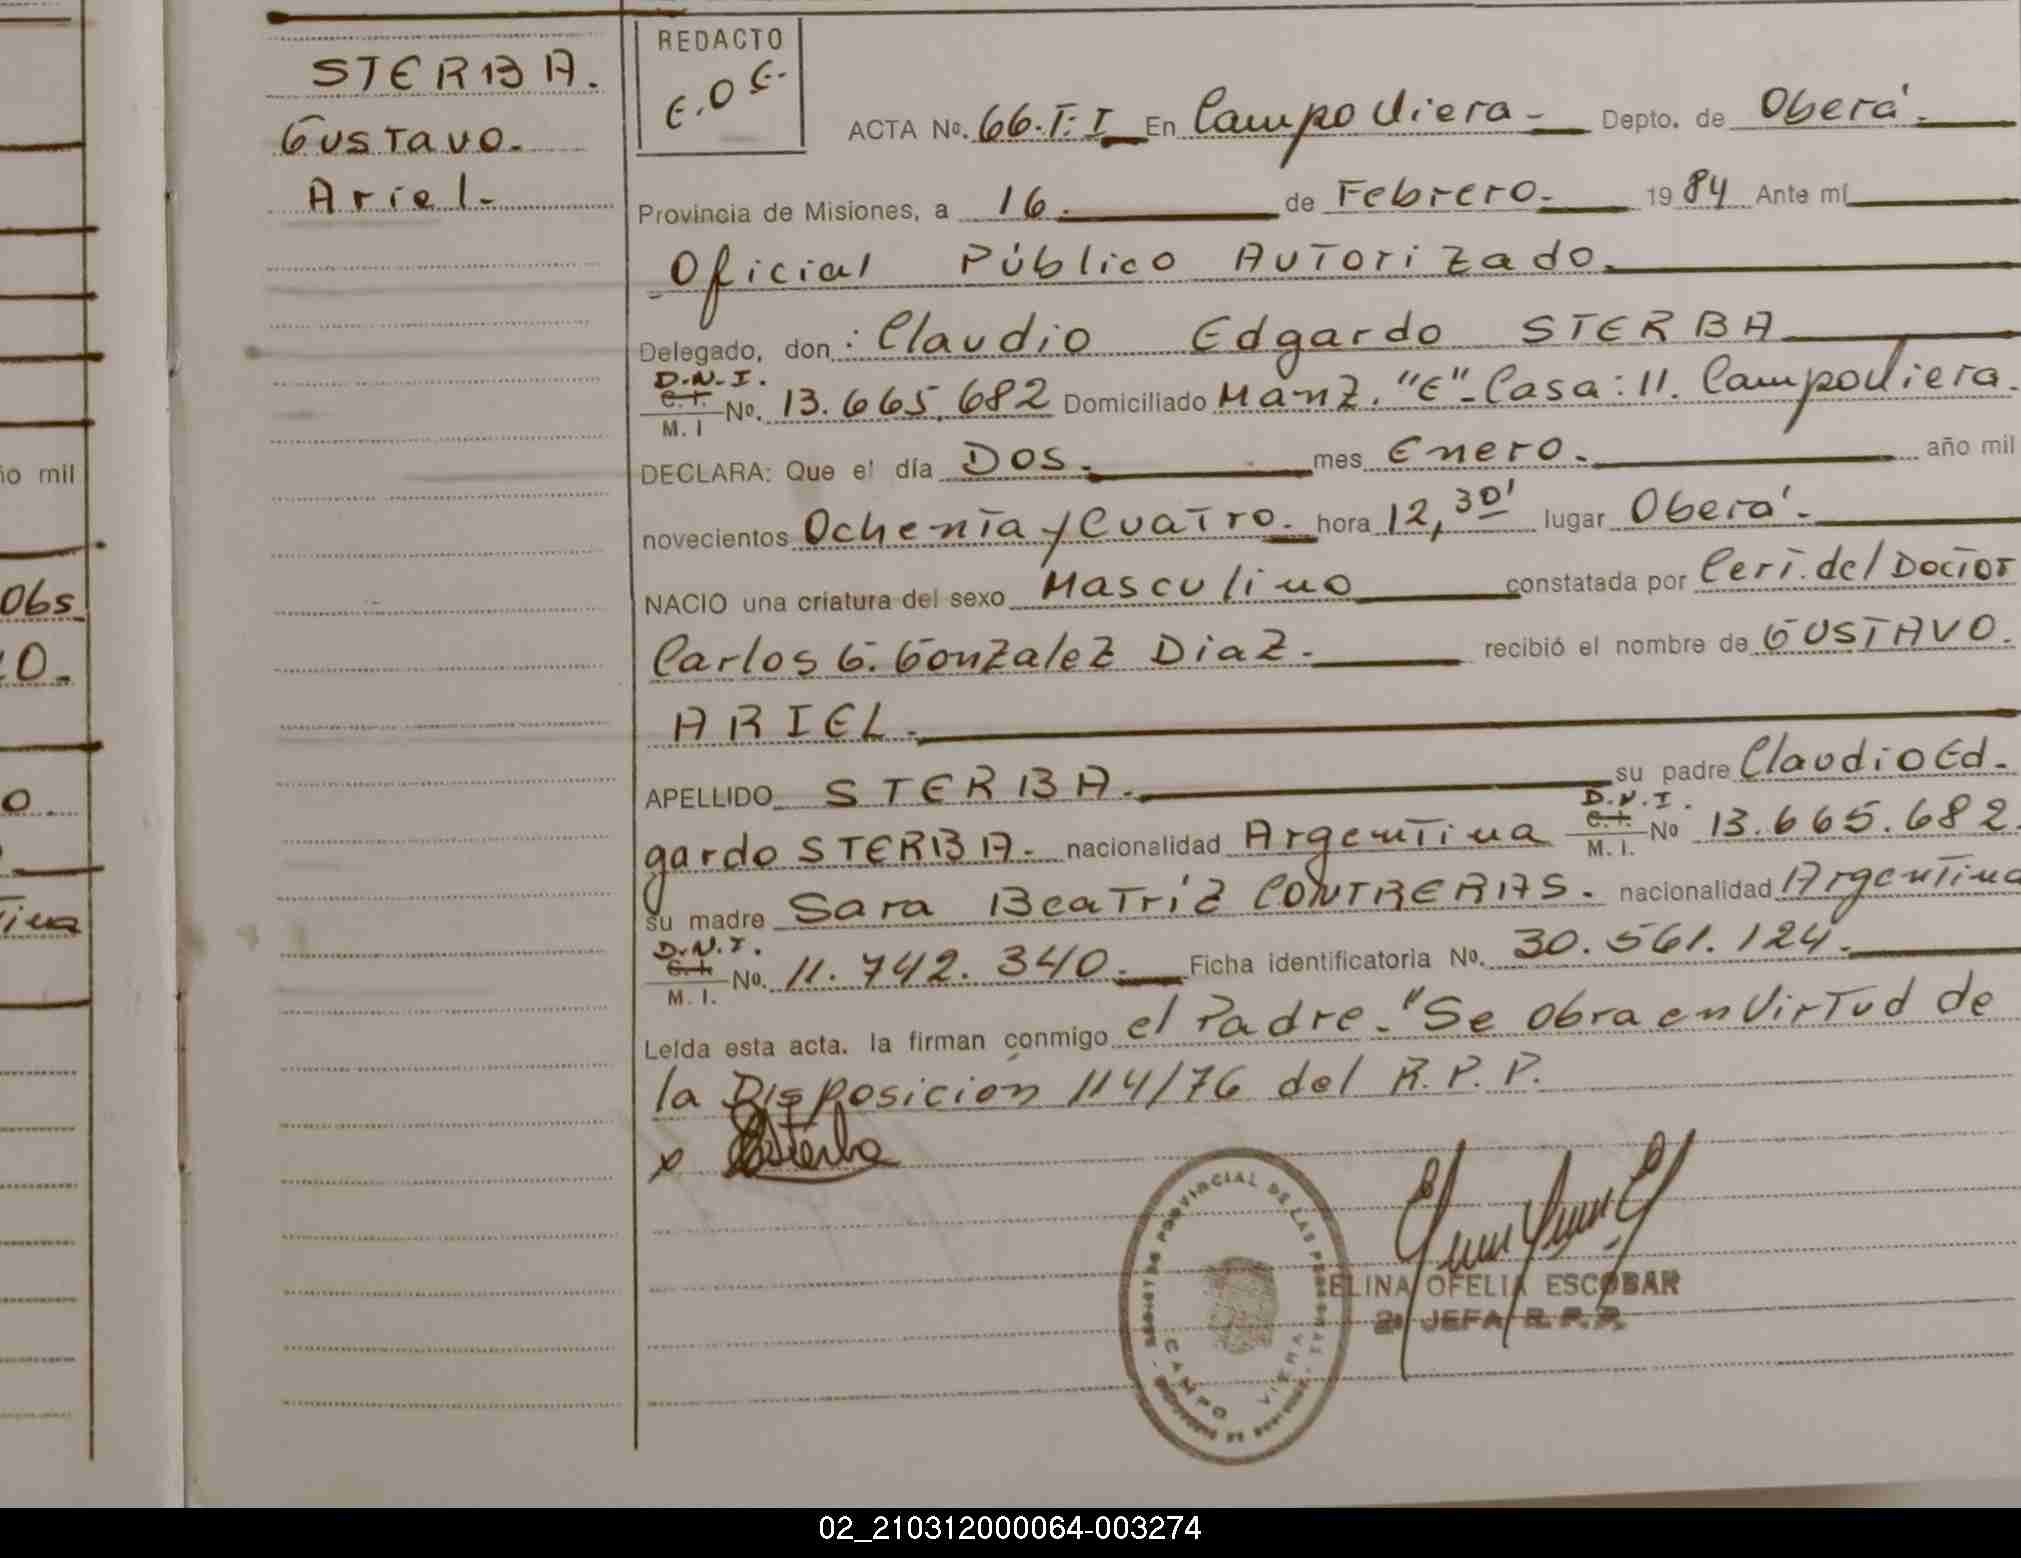 STERBA.
Gustavo.
Ariel.
REDACTO
E.O.E.
ACTA No. 66.T.I En Campo Viera. Depto. de Oberá.
Provincia de Misiones, a 16. de Febrero. 1984 Ante mí
Oficial Público Autorizado.
Delegado, don: Claudio Edgardo STERBA
D.N.I.
C.I. No. 13.665.682 Domiciliado Manz. "E". Casa: 11. Campo Viera.
M. I
DECLARA: Que el día Dos. mes Enero. año mil
novecientos Ochenta y Cuatro. hora 12,30' lugar Oberá.
NACIO una criatura del sexo Masculino constatada por Cert. del Doctor
Carlos G. Gonzalez Diaz. recibió el nombre de GUSTAVO.
ARIEL.
APELLIDO STERBA. su padre Claudio Ed.
D.N.I.
gardo STERBA. nacionalidad Argentina C.I. No 13.665.682.
M. I.
su madre Sara Beatríz CONTRERAS. nacionalidad Argentina
D.N.I.
C.I. No. 11.742.340. Ficha identificatoria No. 30.561.124.
M. I.
Leída esta acta. la firman conmigo el Padre. "Se obra en Virtud de
la Disposición 114/76 del R.P.P.
x Sterba
REGISTRO PROVINCIAL DE LAS PERSONAS
CAMPO VIERA
ELINA OFELIA ESCOBAR
2ª JEFA R.P.P.
ño mil
Obs
O.
o
tina
02_210312000064-003274